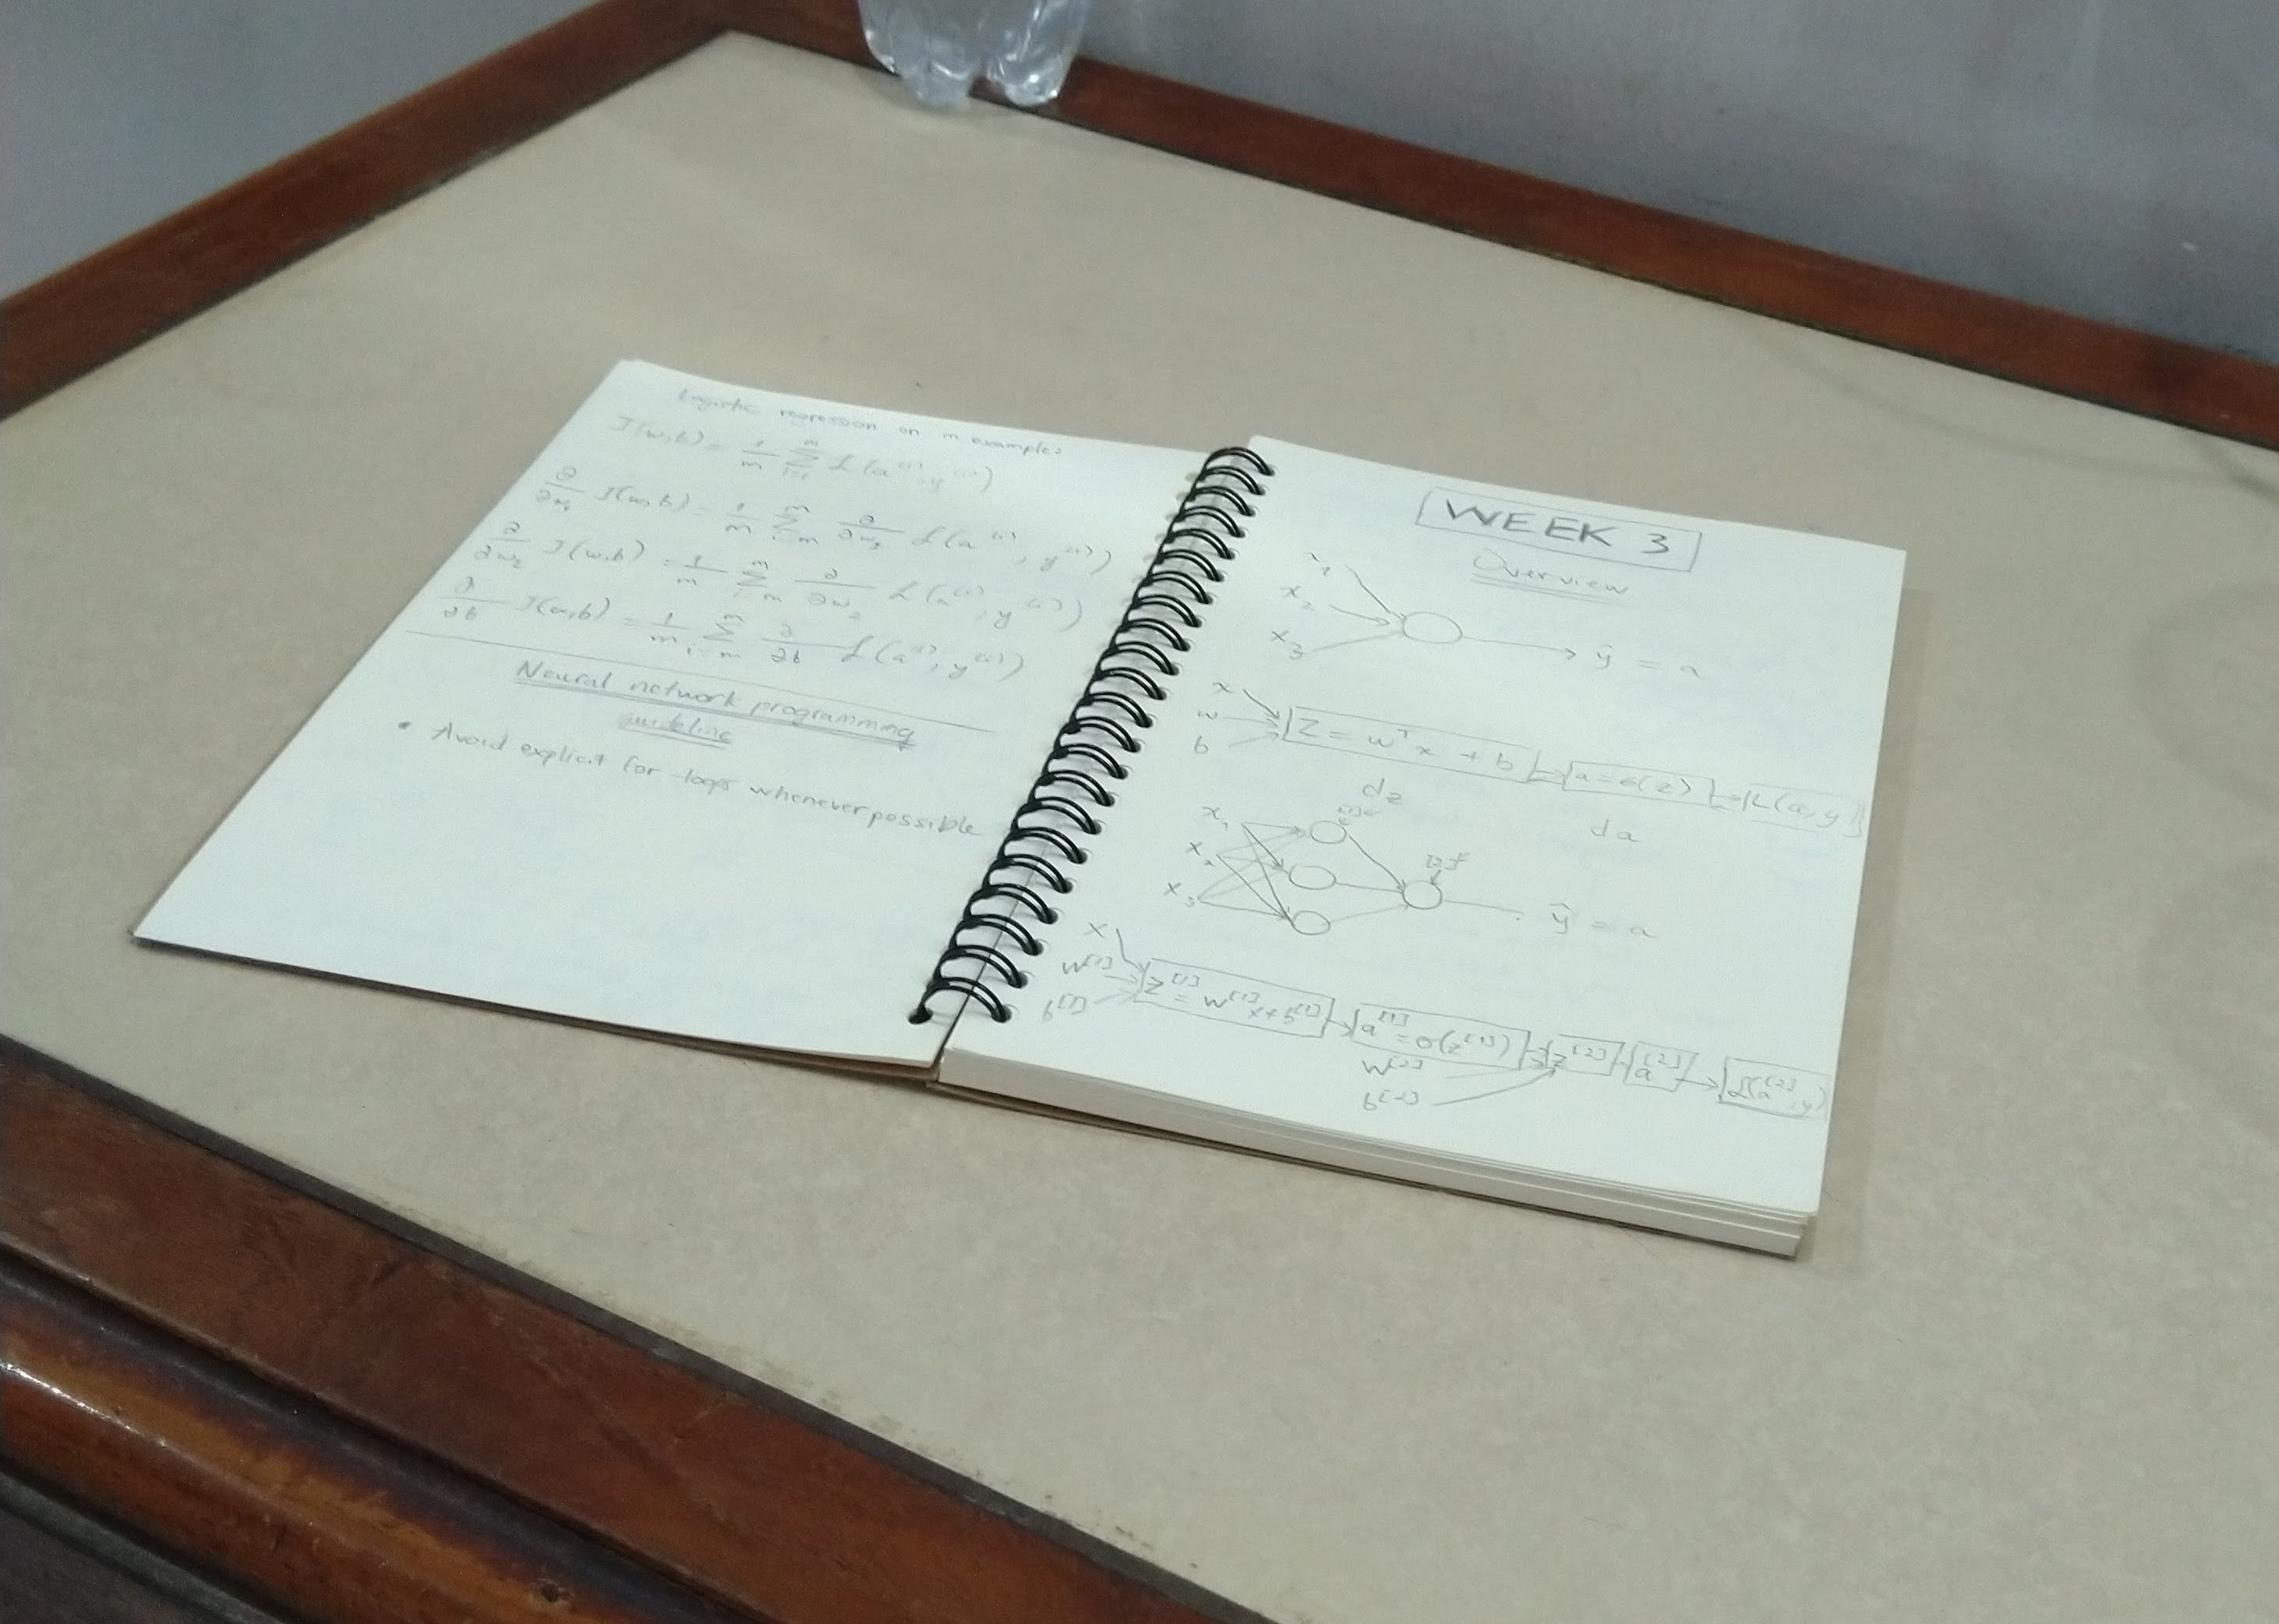 Logistic regression on m examples
J(w,b) = 1/m Σ_{i=1}^{m} ℒ(a^{(i)}, y^{(i)})
∂/∂w₁ J(w,b) = 1/m Σ_{i=m}^{m} ∂/∂w₁ ℒ(a^{(i)}, y^{(i)})
∂/∂w₂ J(w,b) = 1/m Σ_{i=m}^{m} ∂/∂w₂ ℒ(a^{(i)}, y^{(i)})
∂/∂b J(w,b) = 1/m Σ_{i=m}^{m} ∂/∂b ℒ(a^{(i)}, y^{(i)})
Neural network programming
guideline
• Avoid explicit for-loops whenever possible
WEEK 3
Overview
x₁
x₂
x₃
ŷ = a
x
w
b
Z = wᵀx + b
a = σ(z)
L(a, y)
dz
da
x₁
x₂
x₃
[1]
[2]
ŷ = a
x
W^{[1]}
b^{[1]}
Z^{[1]} = W^{[1]}x + b^{[1]}
a^{[1]} = σ(z^{[1]})
z^{[2]}
a^{[2]}
ℒ(a^{[2]}, y)
W^{[2]}
b^{[2]}